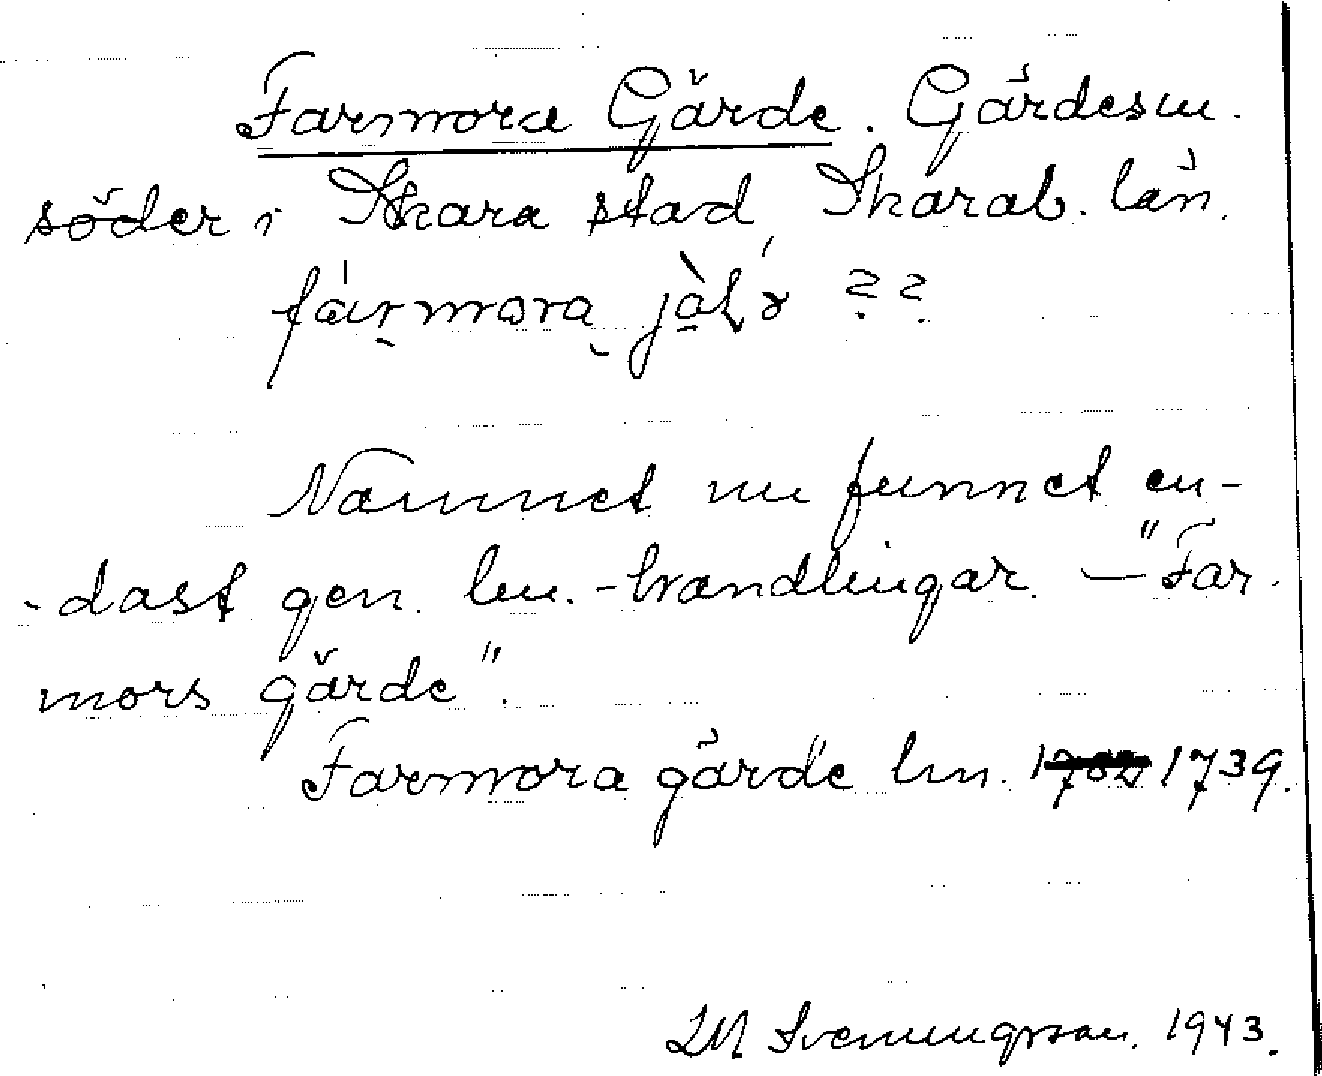 Farmora Gärde. Gärdesm.
söder i Skara stad, Skarab. län.
fármora jàɫɤ ??
Namnet nu funnet en-
-dast gen. lm.-handlingar. — "Far-
mors gärde".
Farmora gärde lm. 1739.
LM Svenungsson. 1943.